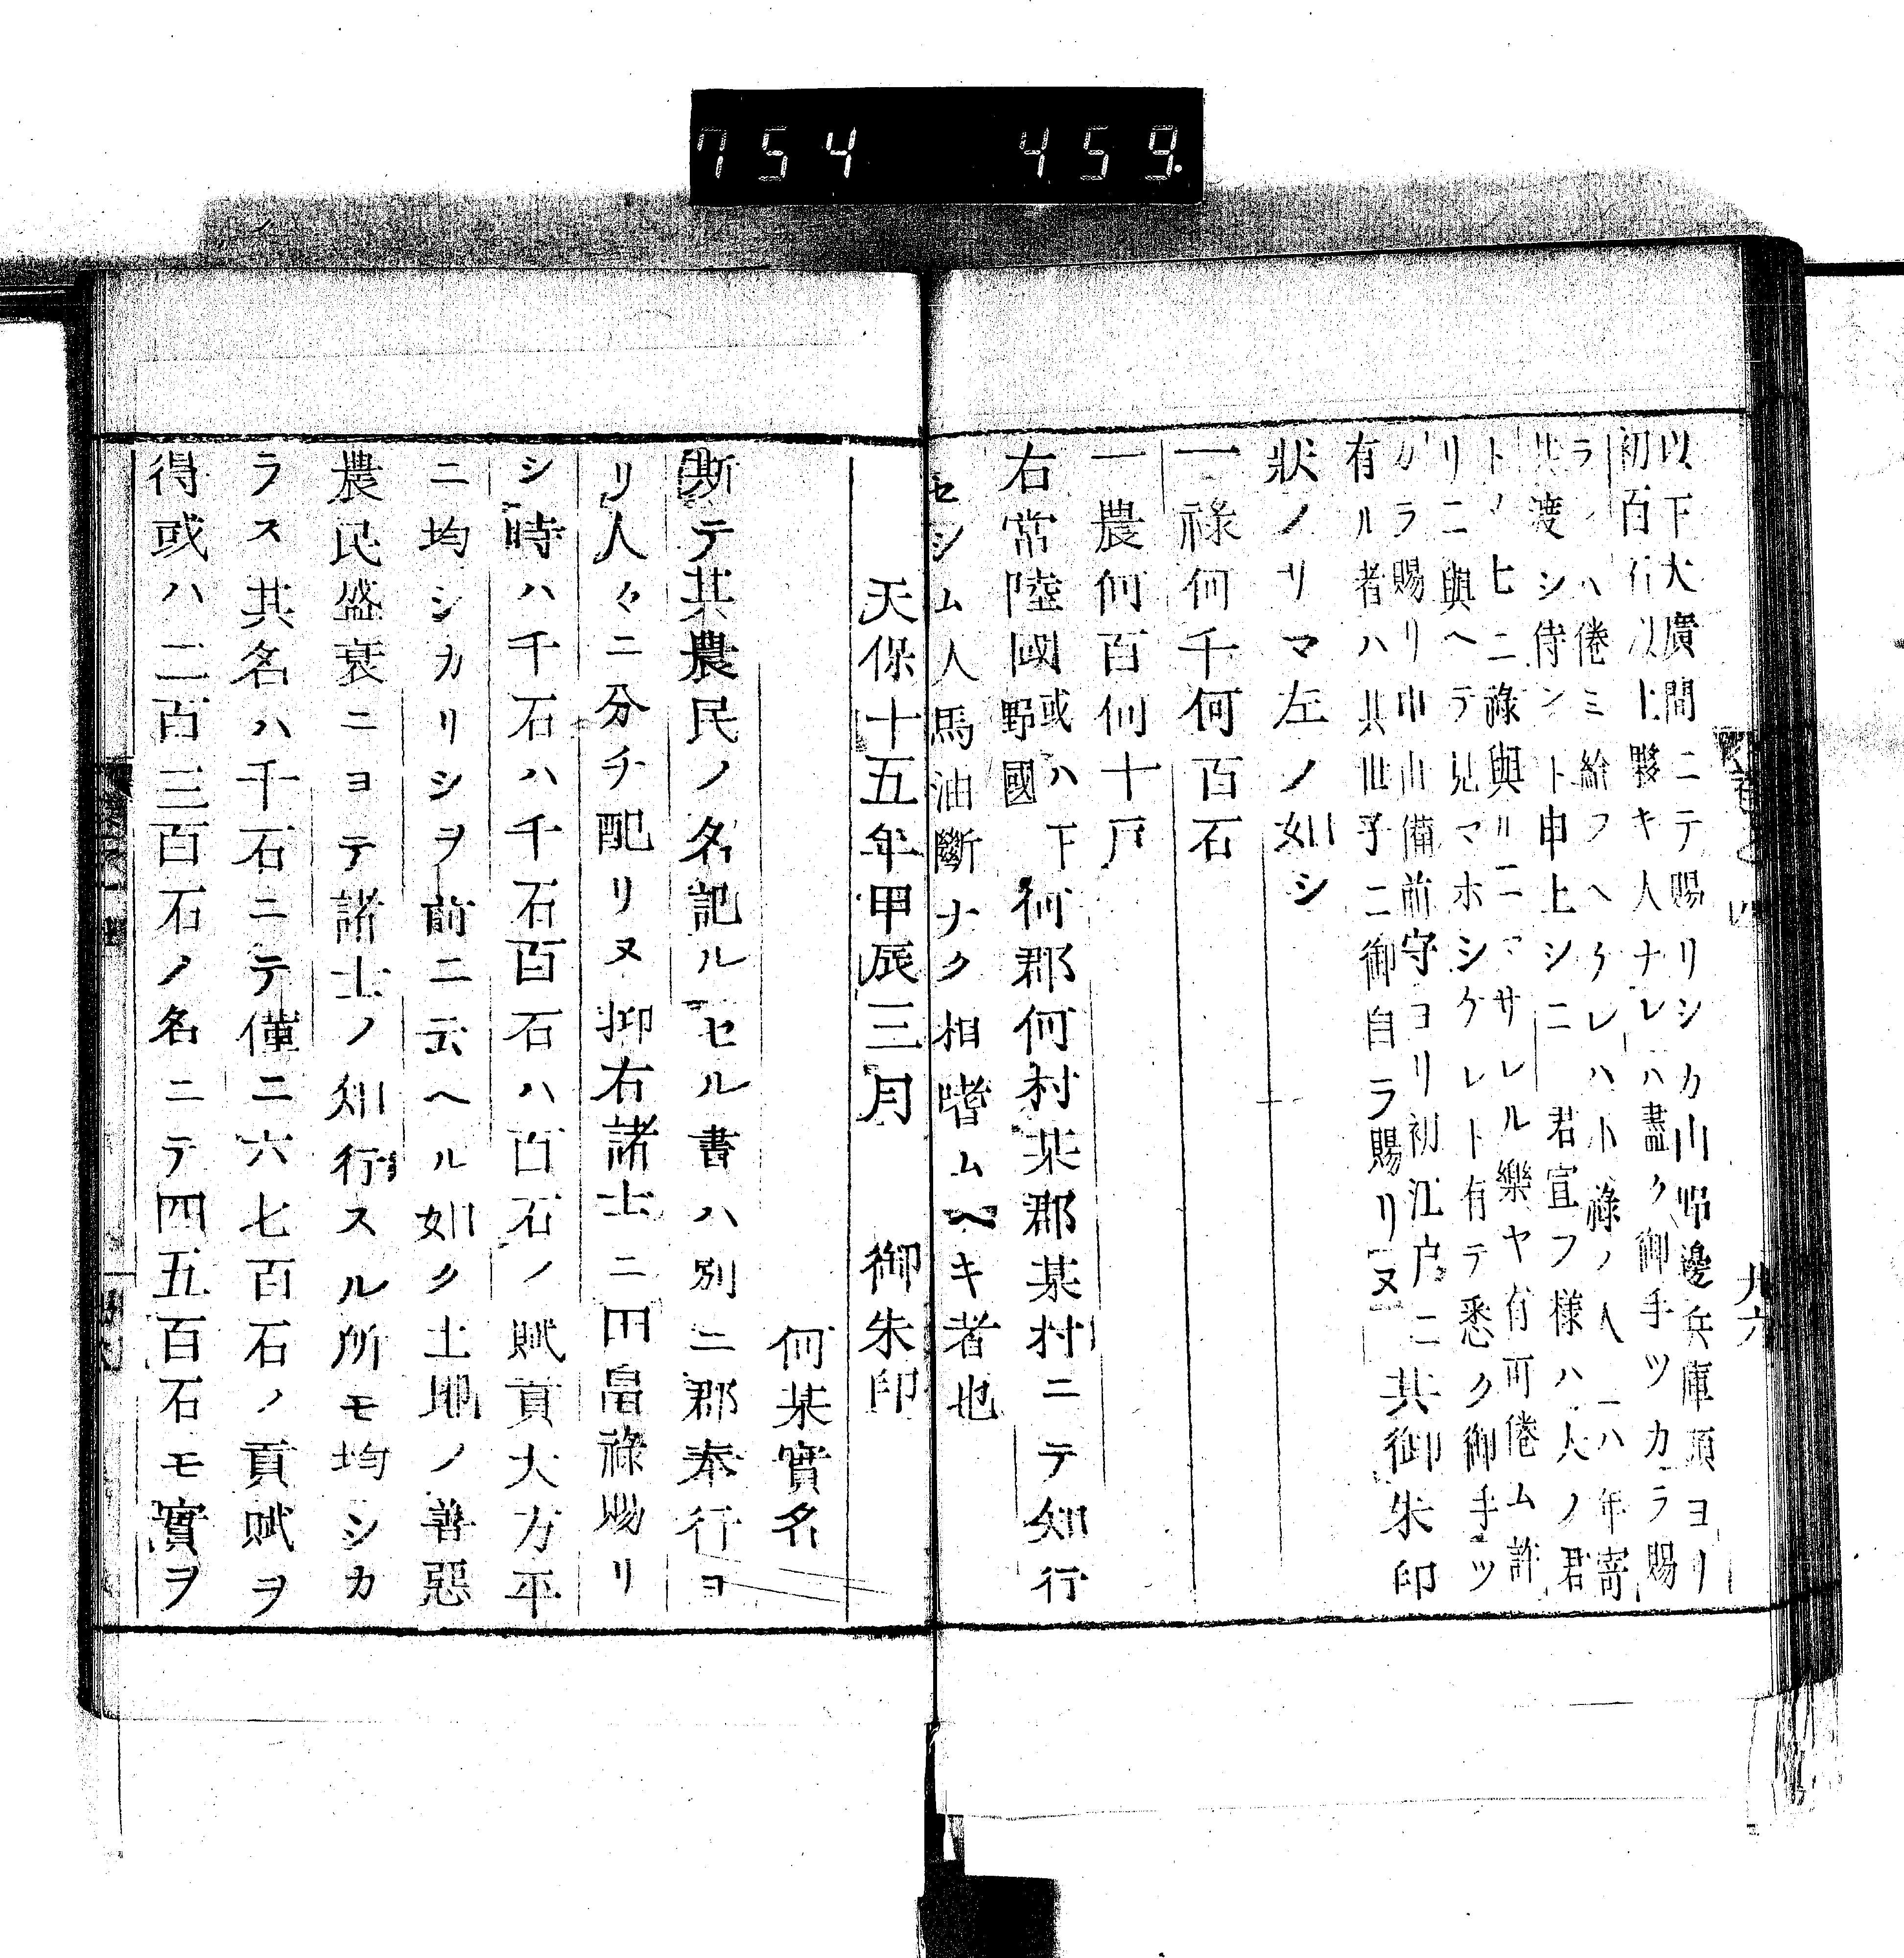 754 459
卷之四 廿六
以下大廣間ニテ賜リシカ山野邊兵庫頭ヨリ
初百石以上夥キ人ナレハ盡ク御手ツカラ賜
ラハ倦ミ給フヘケレハ小祿ノ人ハ年寄
共渡シ侍ント申上シニ 君宣フ樣ハ人ノ君
トノヒニ祿與ルニマサレル樂ヤ有可倦ム許
リニ與ヘテ見マホシケレト有テ悉ク御手ツ
カラ賜リ中山備前守ヨリ初江戸ニ
有ル者ハ其世子ニ御自ラ賜リヌ 其御朱印
狀ノリマ左ノ如シ
一祿何千何百石
一農何百何十戸
右常陸國或ハ下野國 何郡何村某郡某村ニテ知行
セシム人馬油斷ナク相嗜ムヘキ者也
天保十五年甲辰三月 御朱印
何某實名
斯テ其農民ノ名記ルセル書ハ別ニ郡奉行ヨ
リ人々ニ分チ配リヌ抑右諸士ニ田畠祿賜リ
シ時ハ千石ハ千石百石ハ百石ノ賦貢大方平
ニ均シカリシヲ前ニ云ヘル如ク土地ノ善惡
農民盛衰ニヨテ諸士ノ知行スル所モ均シカ
ラス其名ハ千石ニテ僅ニ六七百石ノ貢賦ヲ
得或ハ二百三百石ノ名ニテ四五百石モ實ヲ